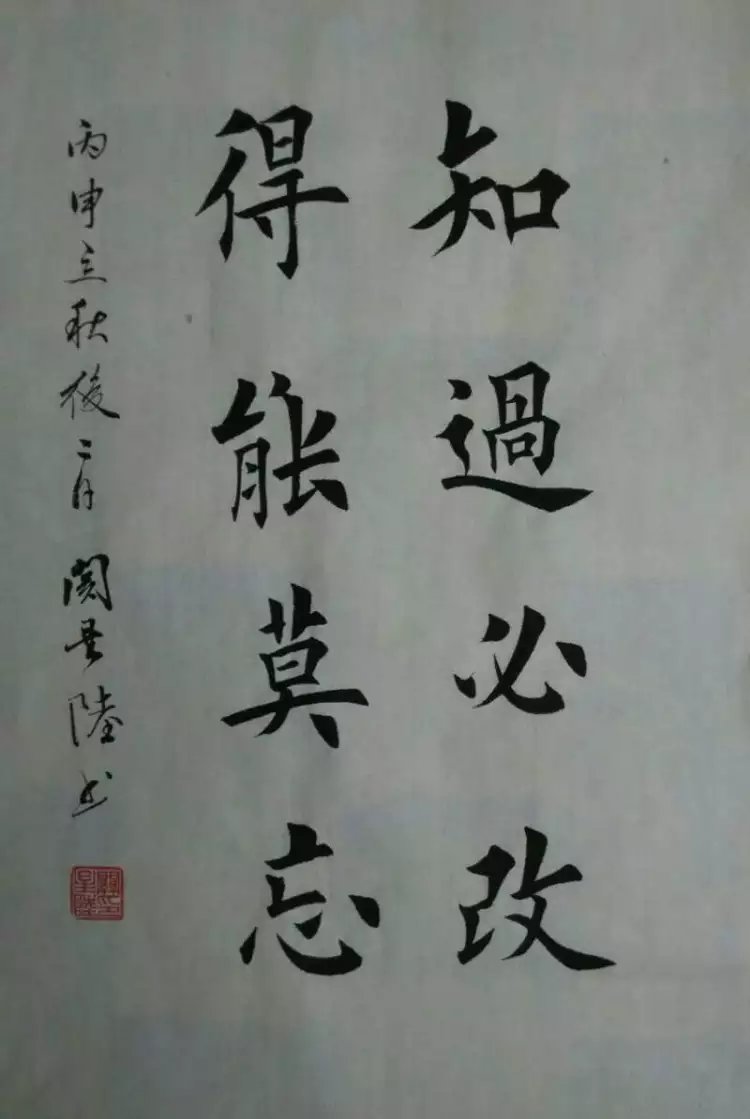 知過必改
得能莫忘
丙申立秋後二日 關星陸书